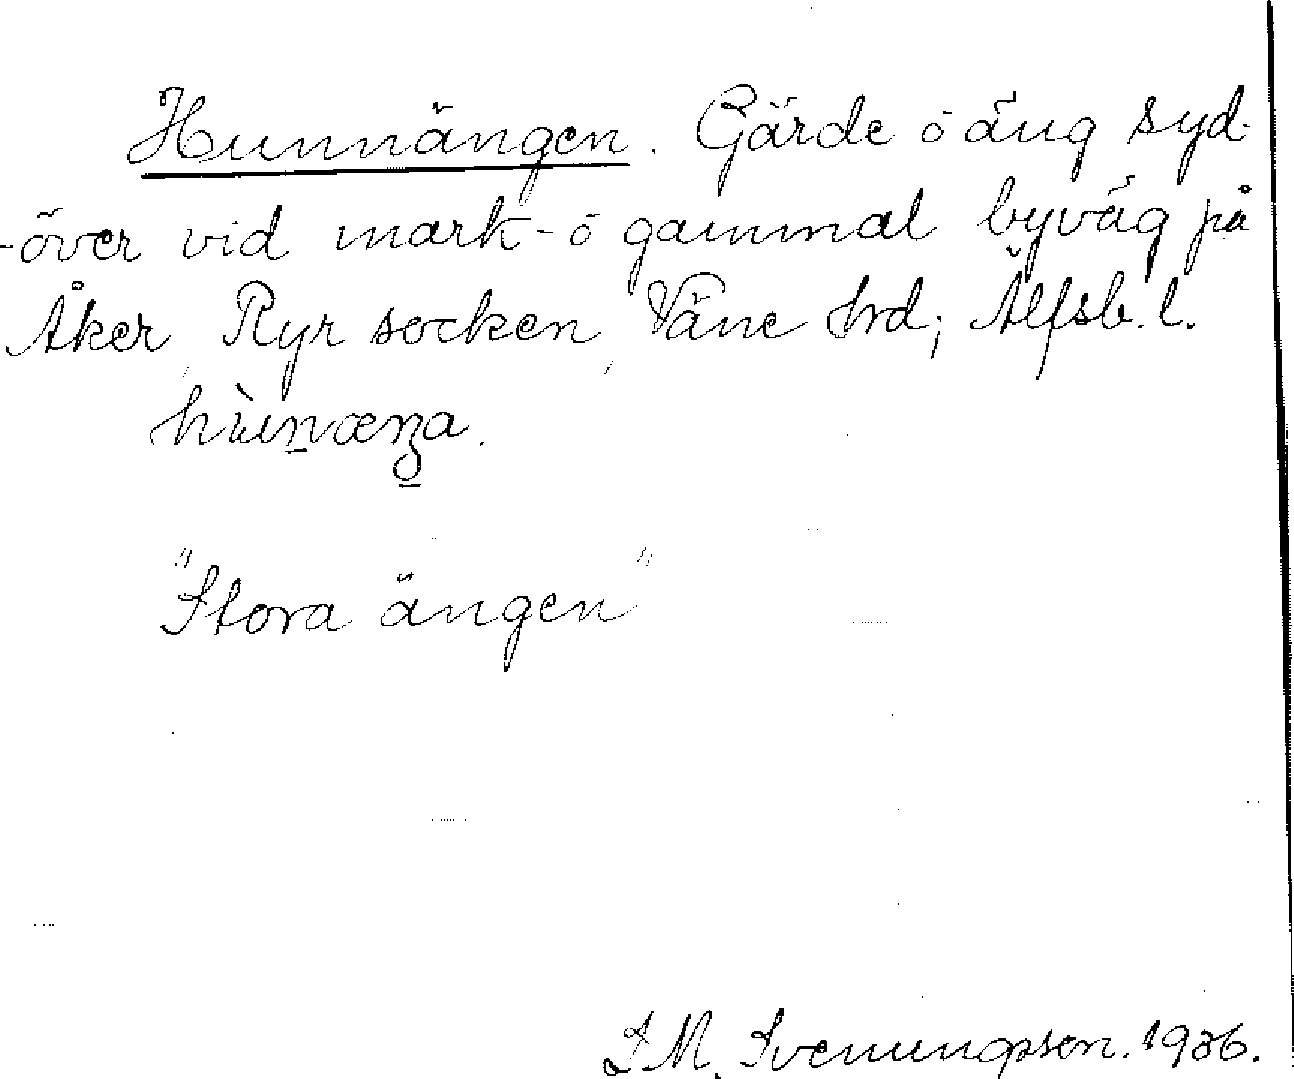 Hunnängen. Gärde o äng syd-
-över vid mark- o gammal byväg på
Åker, Ryr socken, Väne hrd; Älfsb. l.
"Stora ängen"
S. M. Svenungsson. 1936.